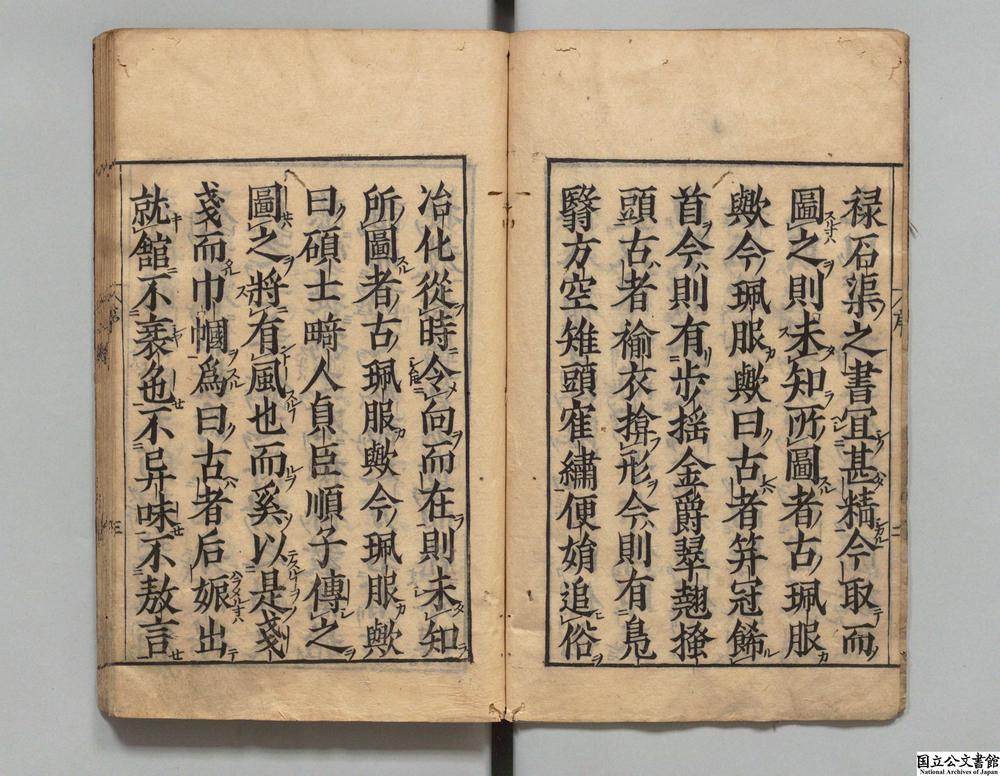 禄石渠之書宜甚精今取而
圖之則未知所圖者古珮服
歟今珮服歟曰古者笄冠餙
首今則有步揺金爵翠翹搔
頭古者褕衣揜形今則有鳧
翳方空雉頭隺繡便娟追俗
冶化從時令向而在則未知
所圖者古珮服歟今珮服歟
曰碩士畸人貞臣順子傳之
圖之將有風也而奚以是戔
戔而巾幗爲曰古者后娠出
就館不衺色不异味不敖言
国立公文書館
National Archives of Japan